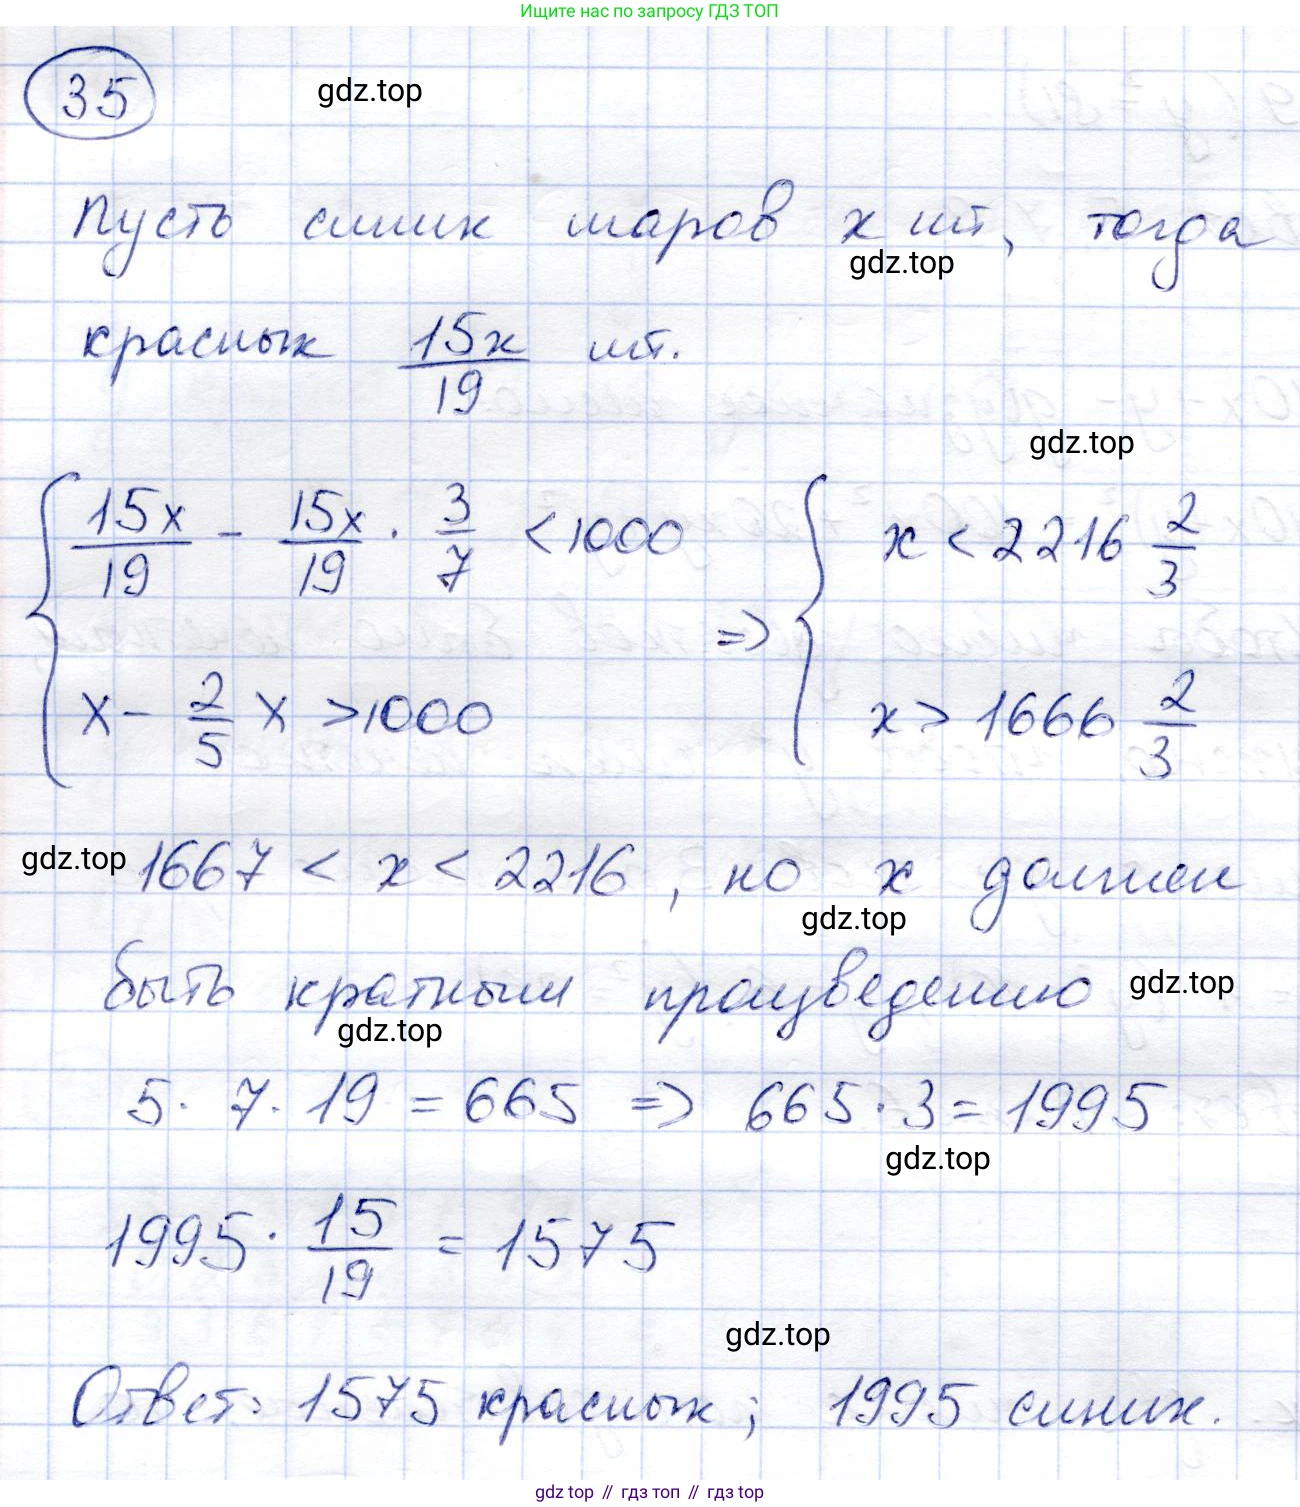 Ищите нас по запросу ГДЗ ТОП
35
gdz.top
Пусть синих шаров x шт, тогда
gdz.top
красных 15x/19 шт.
gdz.top
{ 15x/19 - 15x/19 · 3/7 < 1000
x - 2/5 x > 1000
=> { x < 2216 2/3
x > 1666 2/3
gdz.top
1667 < x < 2216, но x должен
gdz.top
быть кратным произведению
gdz.top
gdz.top
5 · 7 · 19 = 665 => 665 · 3 = 1995
gdz.top
1995 · 15/19 = 1575
gdz.top
Ответ: 1575 красных; 1995 синих.
gdz top // гдз топ // gdz top